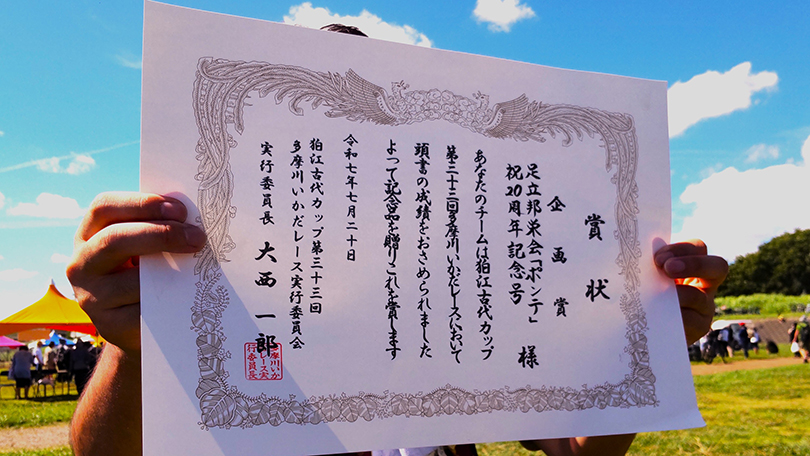 賞状
企画賞
足立邦栄会「ポンテ」
祝20周年記念号 様
あなたのチームは狛江古代カップ
第三十三回多摩川いかだレースいおいて
頭書の成績をおさめられました
よって記念品を贈りこれを賞します
令和七年七月二十日
狛江古代カップ第三十三回
多摩川いかだレース実行委員会
実行委員長 大西一郎
多摩川いか
だレース実
行委員長